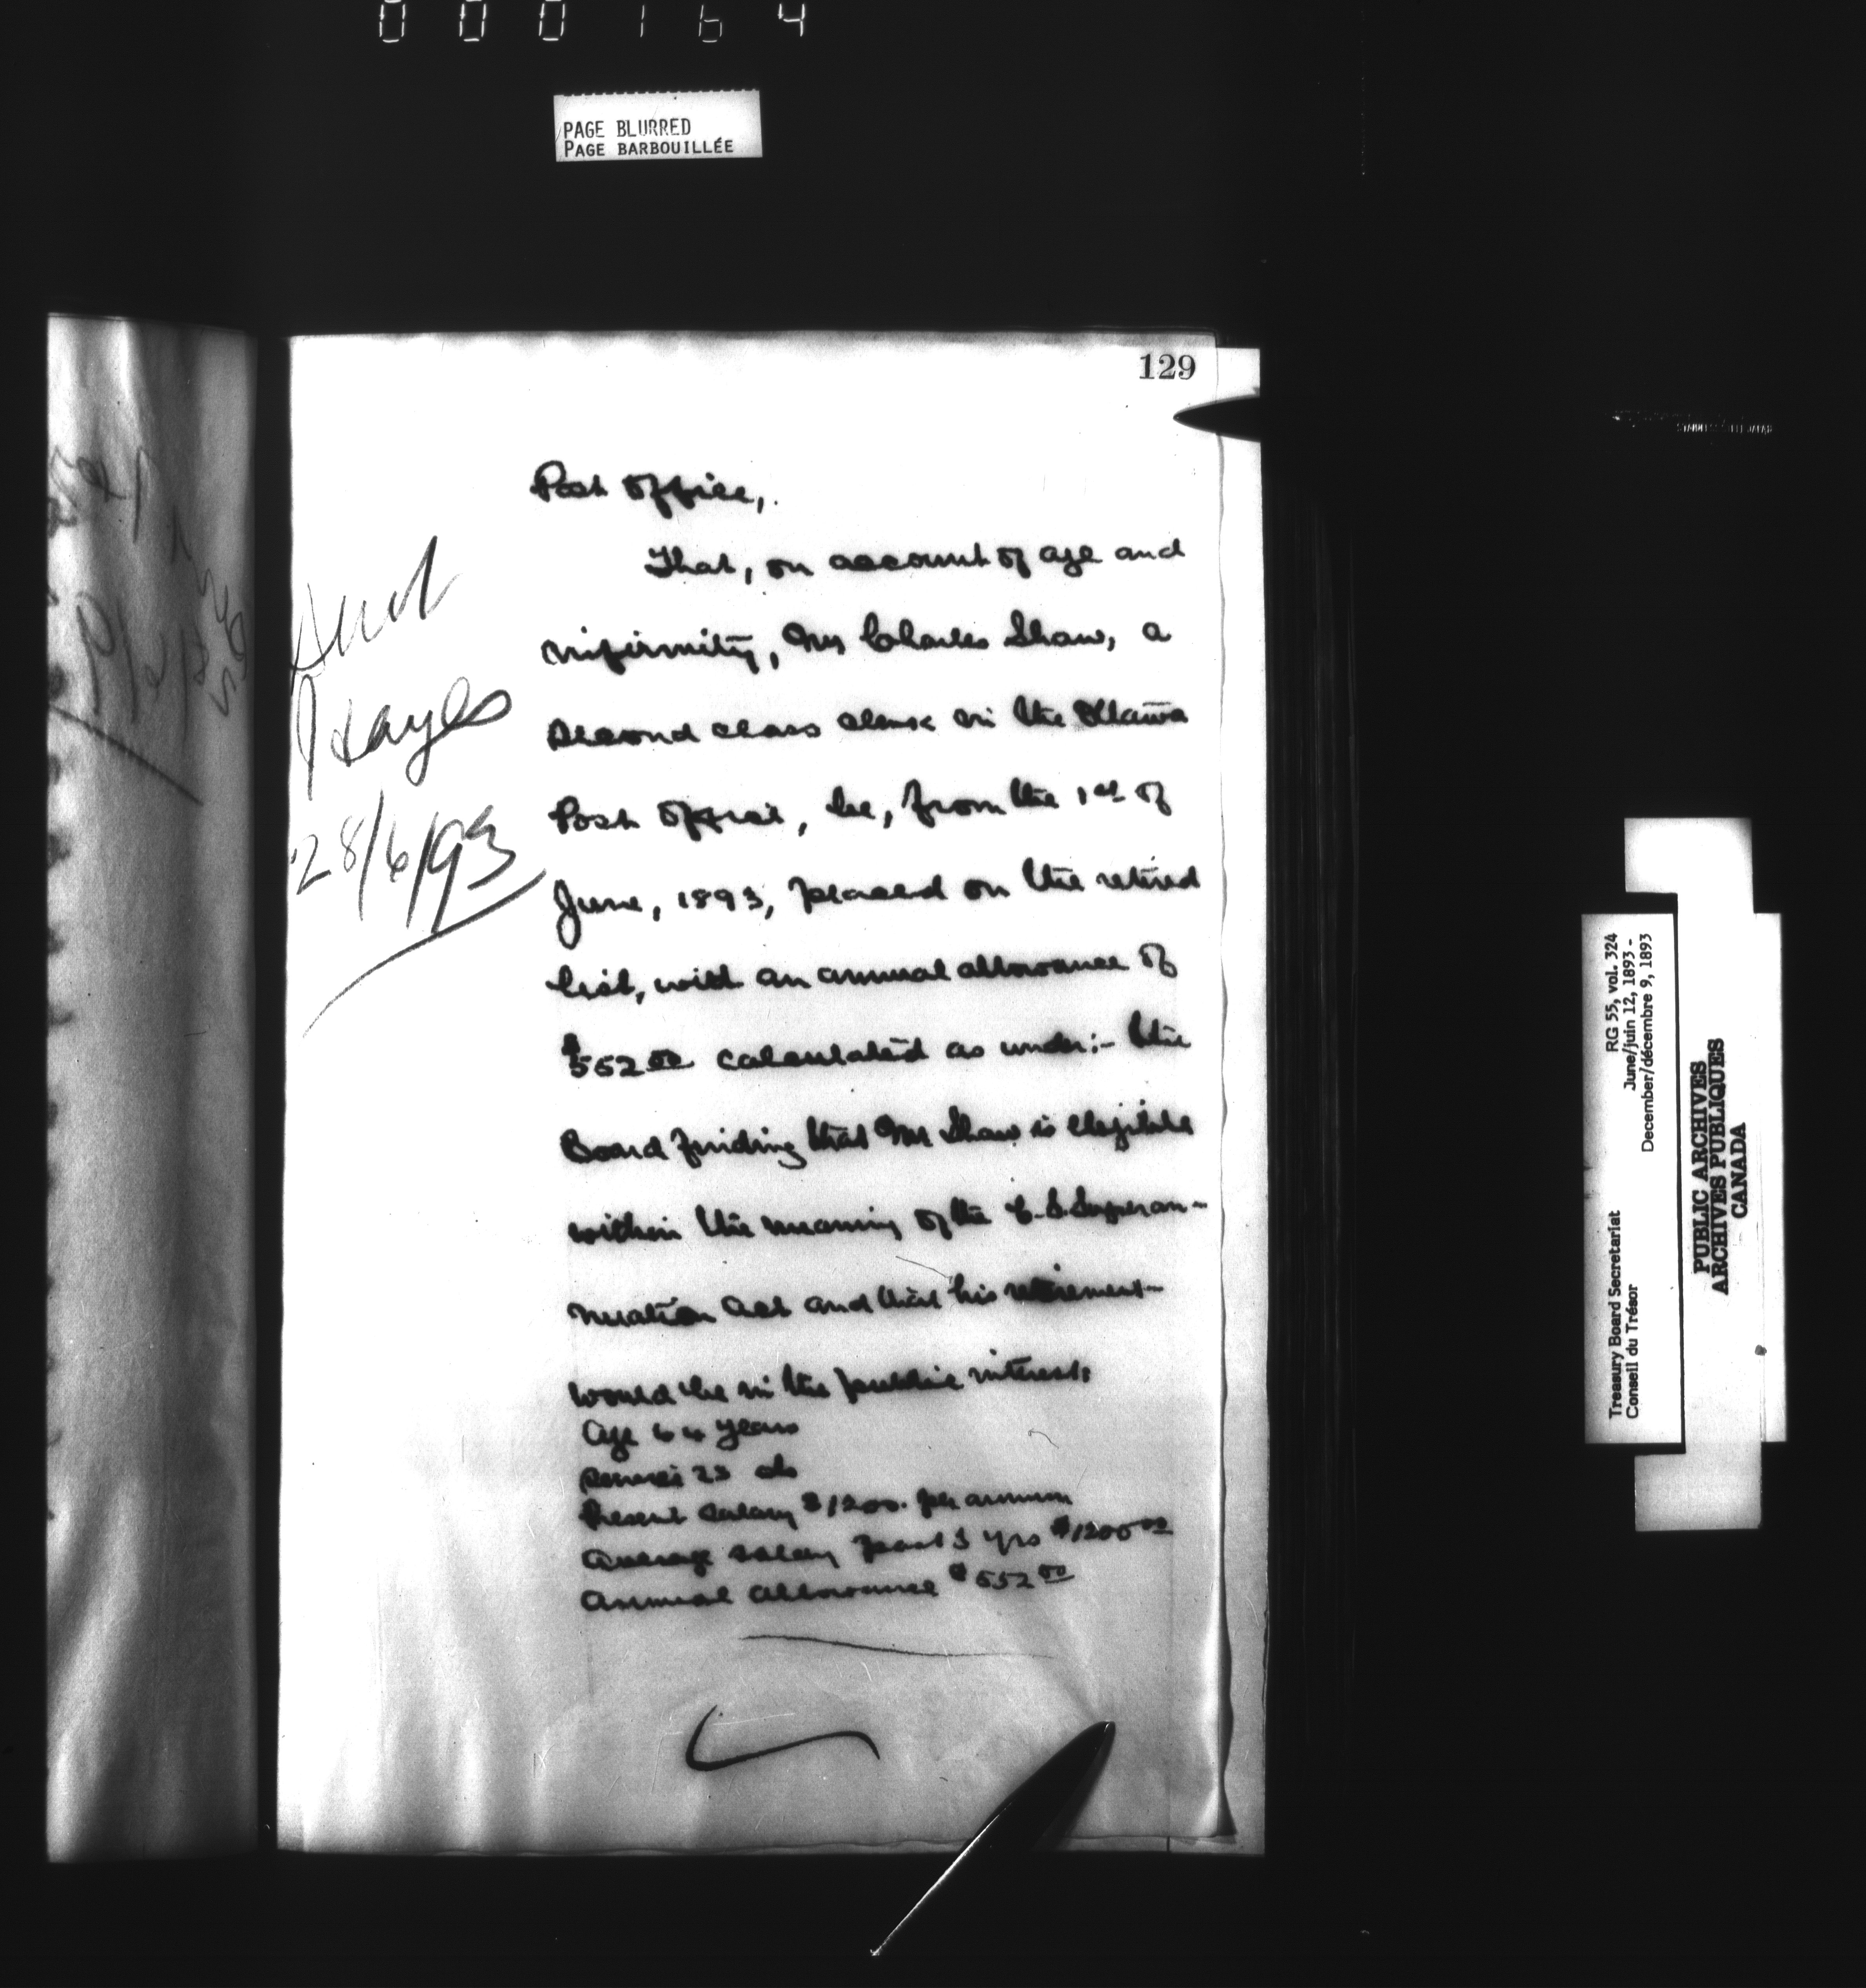 000164
PAGE BLURRED
PAGE BARBOUILLÉE
129
Post Office,
That, on account of age and
infirmity, Mr Charles Shaw, a
second class clerk in the Ottawa
Post Office, be, from the 1st of
June, 1893, placed on the retired
list, with an annual allowance of
$552.00 calculated as under:- the
Board finding that Mr Shaw is eligible
within the meaning of the C.S. Superan-
nuation Act and that his retirement
would be in the public interest:
Age 64 years
Service 23 do
Present salary $1200. per annum
Average salary past 3 yrs $1200.00
Annual allowance $552.00
28/6/93
RG 55, vol. 324
June/juin 12, 1893 -
December/décembre 9, 1893
Treasury Board Secretariat
Conseil du Trésor
PUBLIC ARCHIVES
ARCHIVES PUBLIQUES
CANADA